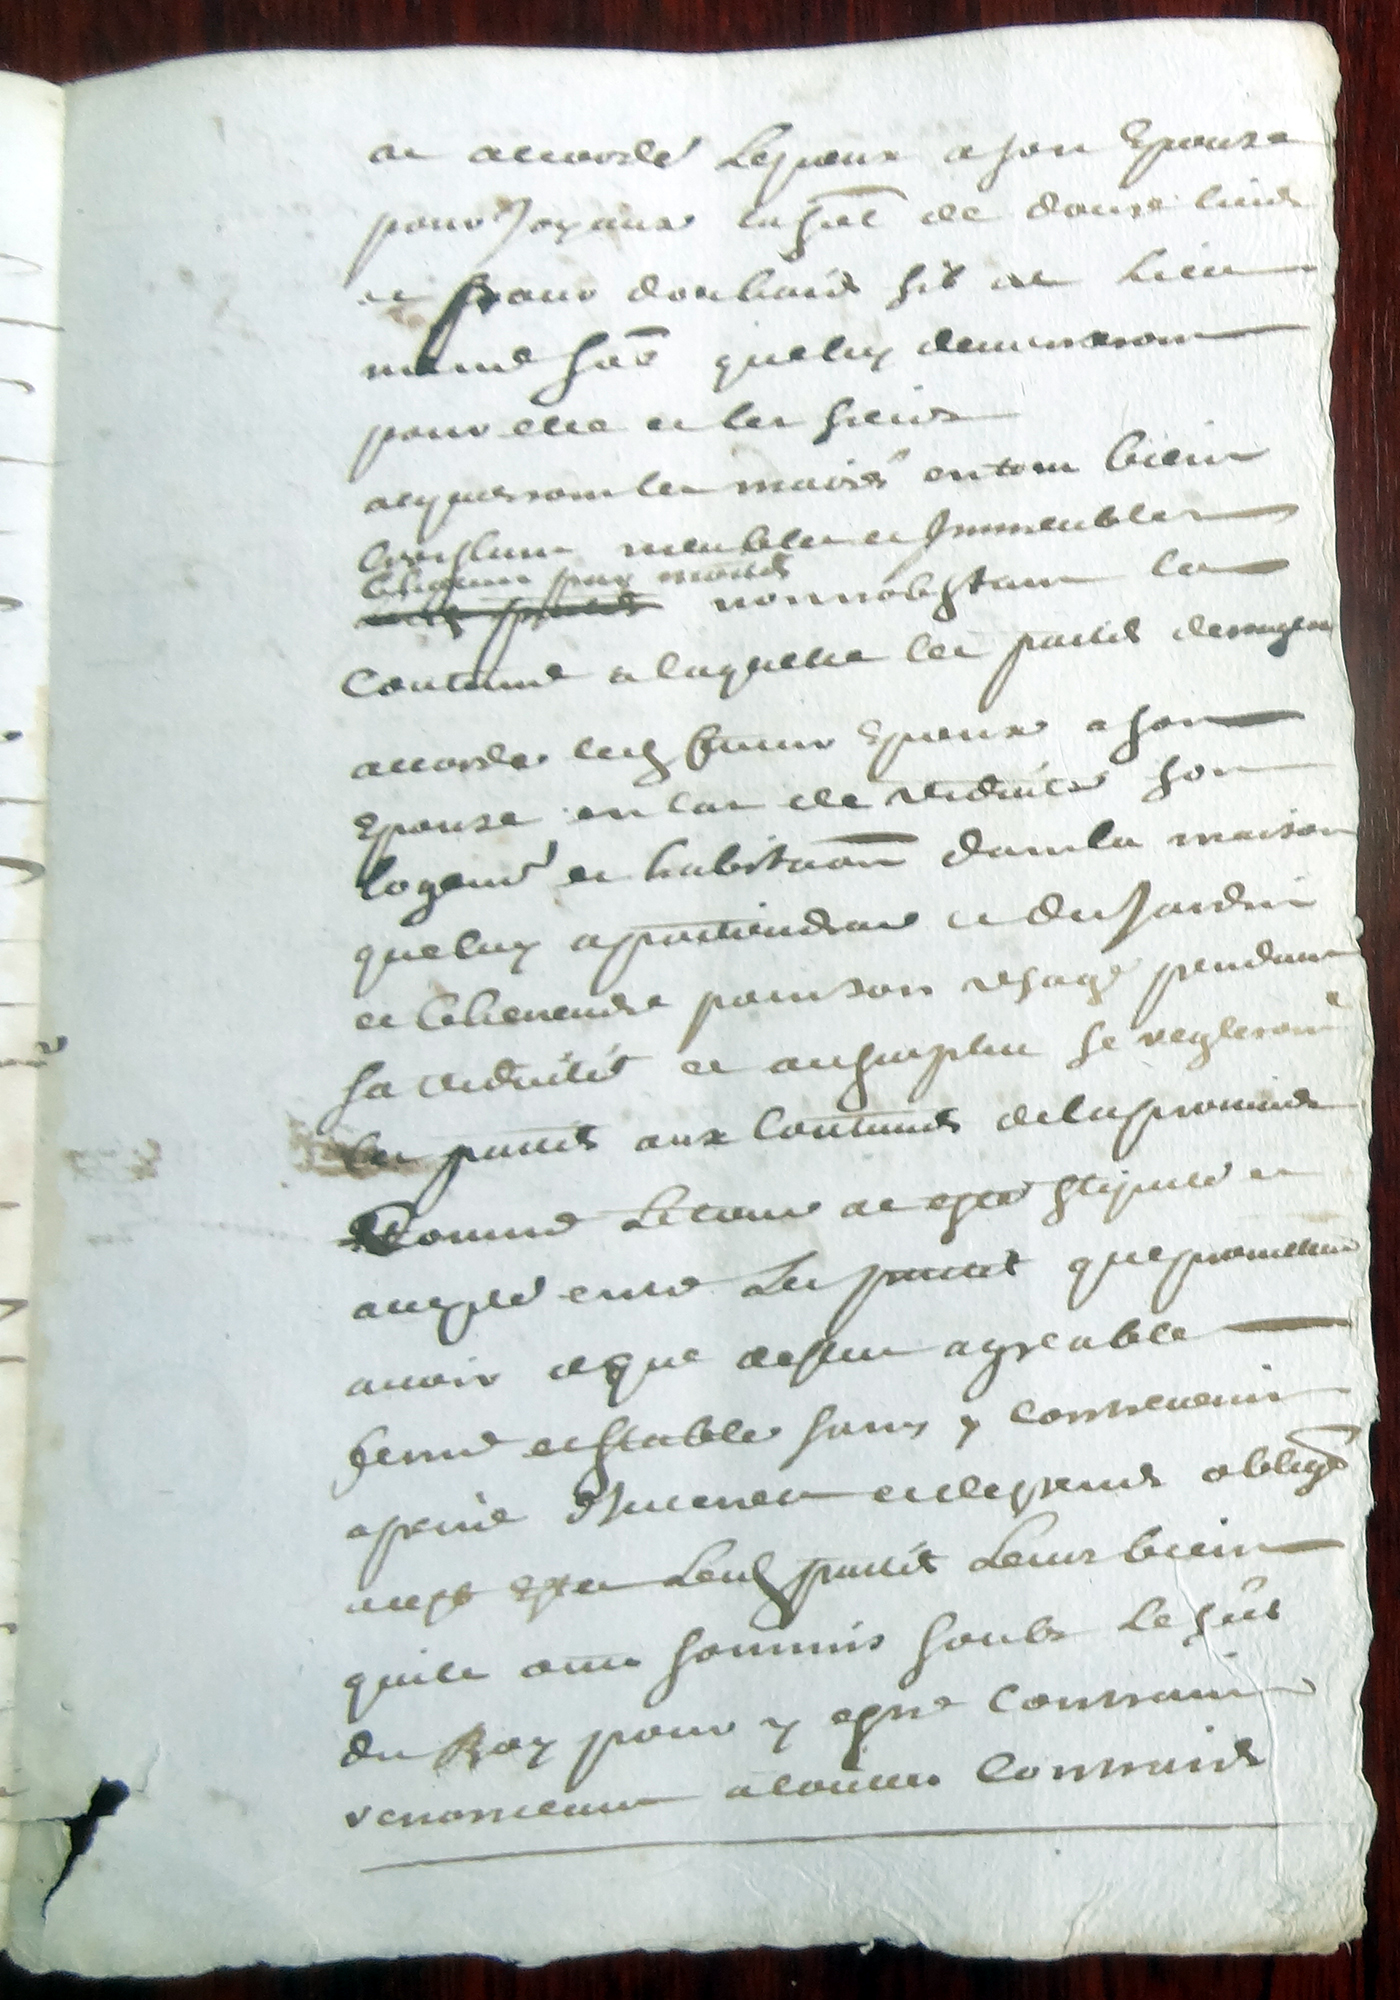 ac accordé Lepoux a son Epouze
pour Joyaux la som̄e de douze livres
et pour douhaire si il a Lieu
mesme som̄e queluy demeureront
pour elle et les siens
acquerront les mariés entous biens
conqstuns meubles et Immeubles
chacun par moitié
nonnobstant la
Coutume a laquelle les parties derogent
accorde led futeur Epoux a son
Epouze en cas de viduité son
logemt et habitaōn dans la maison
queluy apartiendra et du Jardin
et cheneveire pour son usage pendant
sa viduité et ausurplus se regleront
les parties aux Coutumes de la province
Comme Le tout ac esté stipulé et
accepté entre Les parties que promettent
avoir et que dessus agreable
ferme et stable sans y contrevenir
a peine d'Interets et depens obligeant
a cest effet Lesd parties Leurs biens
quils ont soumis soubs Le scel
du Roy pour y estre Contraints
renonceant a toutes Contraires